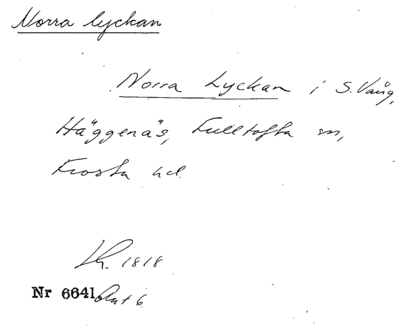 Norra lyckan
Norra Lyckan i S. Vång,
Häggenäs, Fulltofta sn,
Frosta hd.
Lh. 1818
Nr 6641 Akt 6.